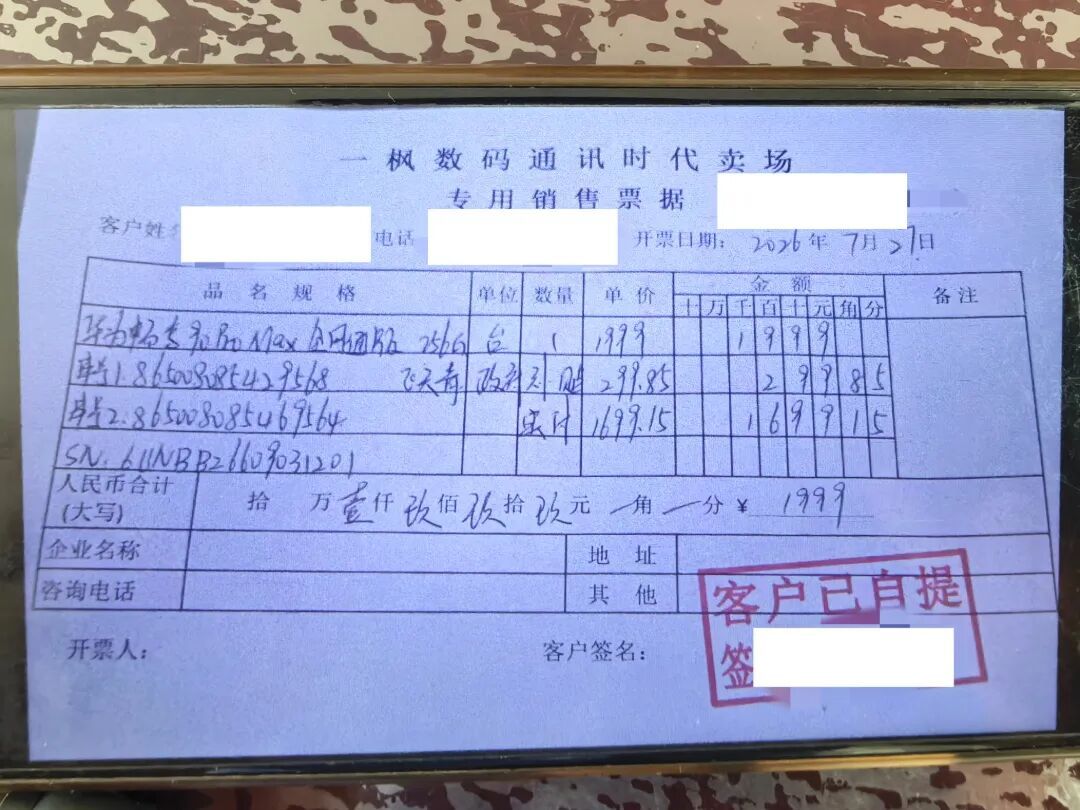 一枫数码通讯时代卖场
专用销售票据
客户姓 电话 开票日期: 2026年7月27日
品名规格 单位 数量 单价 金额 备注
十 万 千 百 十 元 角 分
华为畅享90 Pro Max 全网通版 256G 台 1 1999 1 9 9 9
串号1:865008085429568 飞天青 政府补贴 299.85 2 9 9 8 5
串号2:865008085469564 实付 1699.15 1 6 9 9 1 5
SN: 611NBB26609031201
人民币合计(大写) 拾 万 壹仟 玖佰 玖拾 玖元 一角 一分 ¥ 1999
企业名称 地址
咨询电话 其他
开票人: 客户签名:
客户已自提
签